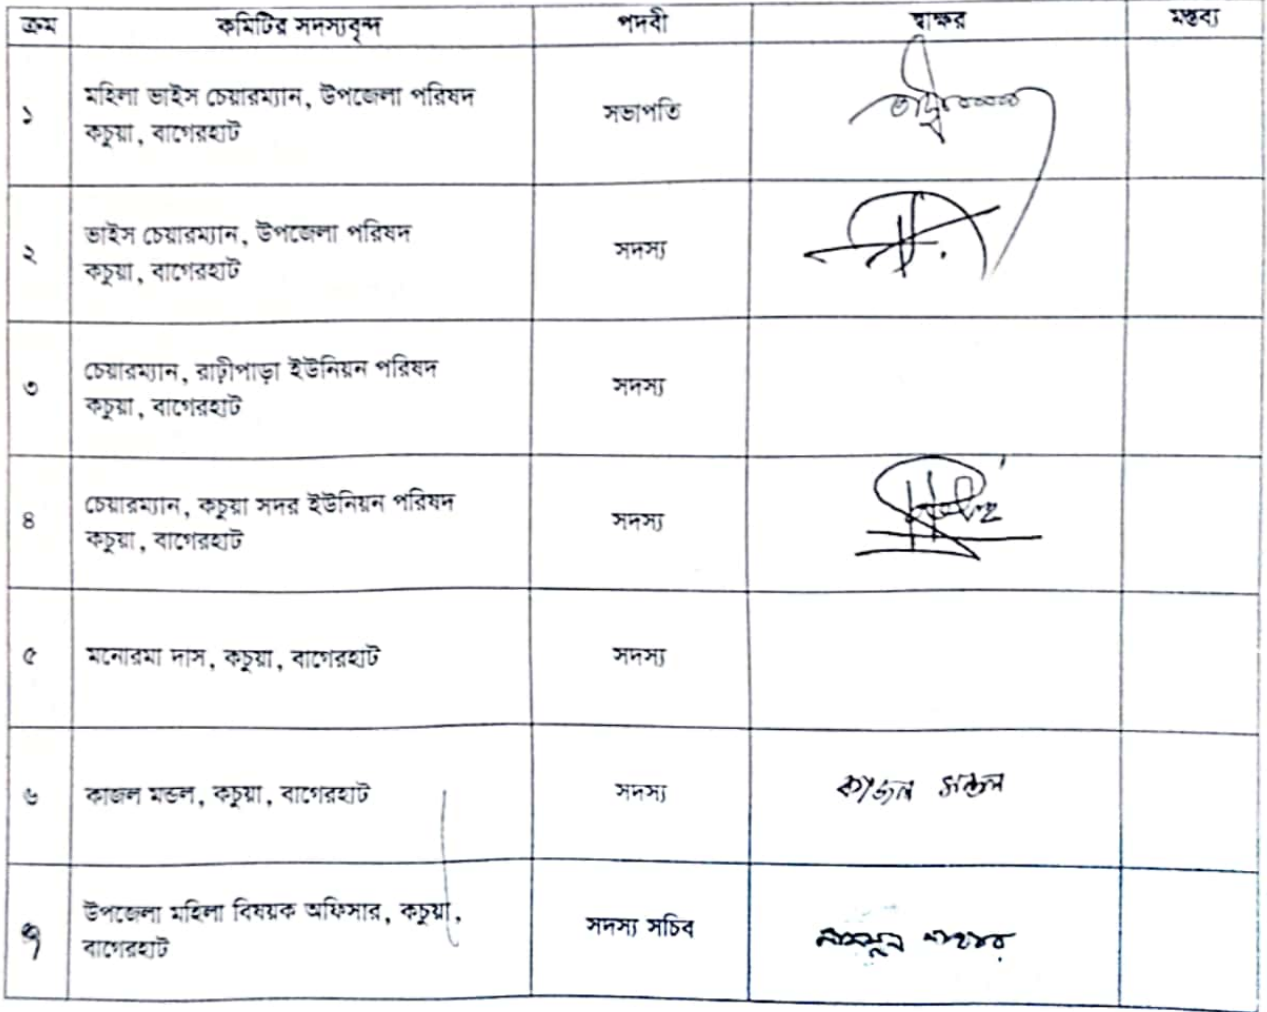 ক্রম কমিটির সদস্যবৃন্দ পদবী স্বাক্ষর মন্তব্য
১ মহিলা ভাইস চেয়ারম্যান, উপজেলা পরিষদ সভাপতি
কচুয়া, বাগেরহাট
২ ভাইস চেয়ারম্যান, উপজেলা পরিষদ সদস্য
কচুয়া, বাগেরহাট
৩ চেয়ারম্যান, রাঢ়ীপাড়া ইউনিয়ন পরিষদ সদস্য
কচুয়া, বাগেরহাট
৪ চেয়ারম্যান, কচুয়া সদর ইউনিয়ন পরিষদ সদস্য
কচুয়া, বাগেরহাট
৫ মনোরমা দাস, কচুয়া, বাগেরহাট সদস্য
৬ কাজল মন্ডল, কচুয়া, বাগেরহাট সদস্য কাজল মন্ডল
৭ উপজেলা মহিলা বিষয়ক অফিসার, কচুয়া, সদস্য সচিব
বাগেরহাট